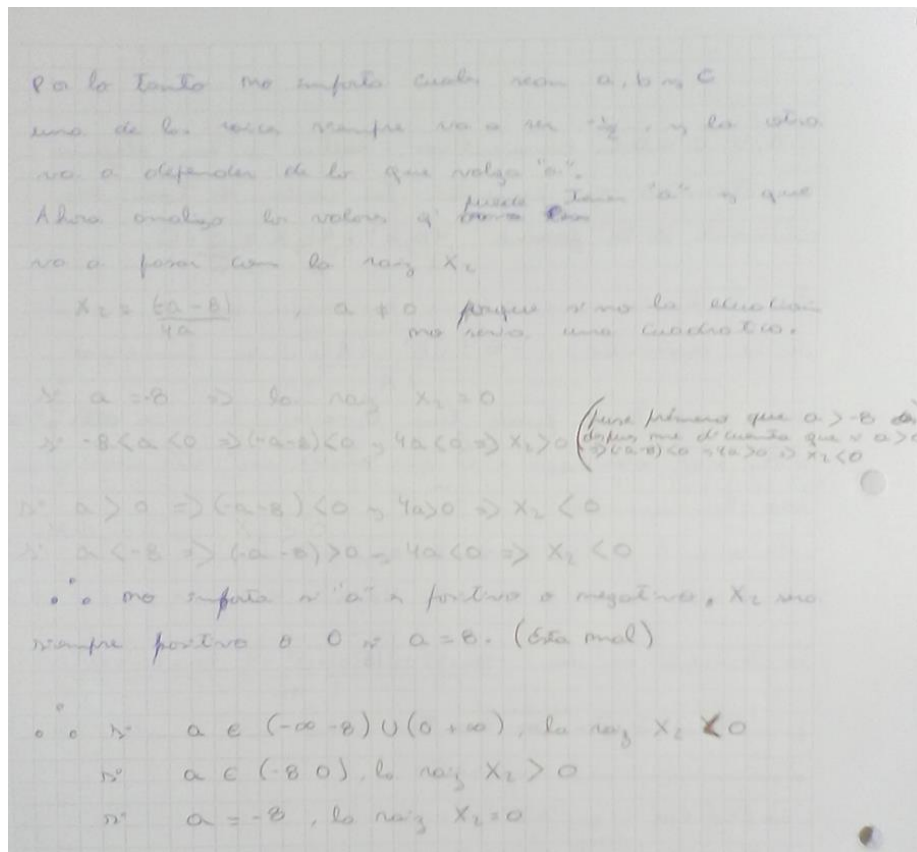 Por lo tanto no importa cuales sean a, b y c
una de las raices siempre va a ser -1/2, y la otra
va a depender de lo que valga "a".
Ahora analizo los valores q' puede tener "a" y que
va a pasar con la raiz X₂
X₂ = (-a-8)/4a , a ≠ 0 porque si no la ecuacion
no seria una cuadratica.
Si a = -8 => la raiz X₂ = 0
Si -8 < a < 0 => (-a-8) < 0 y 4a < 0 => X₂ > 0 (puse primero que a > -8
despues me di cuenta que si a >
=> (-a-8) < 0 y 4a > 0 => X₂ < 0
Si a > 0 => (-a-8) < 0 y 4a > 0 => X₂ < 0
Si a < -8 => (-a-8) > 0 y 4a < 0 => X₂ < 0
∴ no importa si "a" es positivo o negativo, X₂ sera
siempre positivo o 0 si a = 8. (Esta mal)
∴ Si a ∈ (-∞ -8) ∪ (0 +∞), la raiz X₂ < 0
Si a ∈ (-8 0), la raiz X₂ > 0
Si a = -8, la raiz X₂ = 0